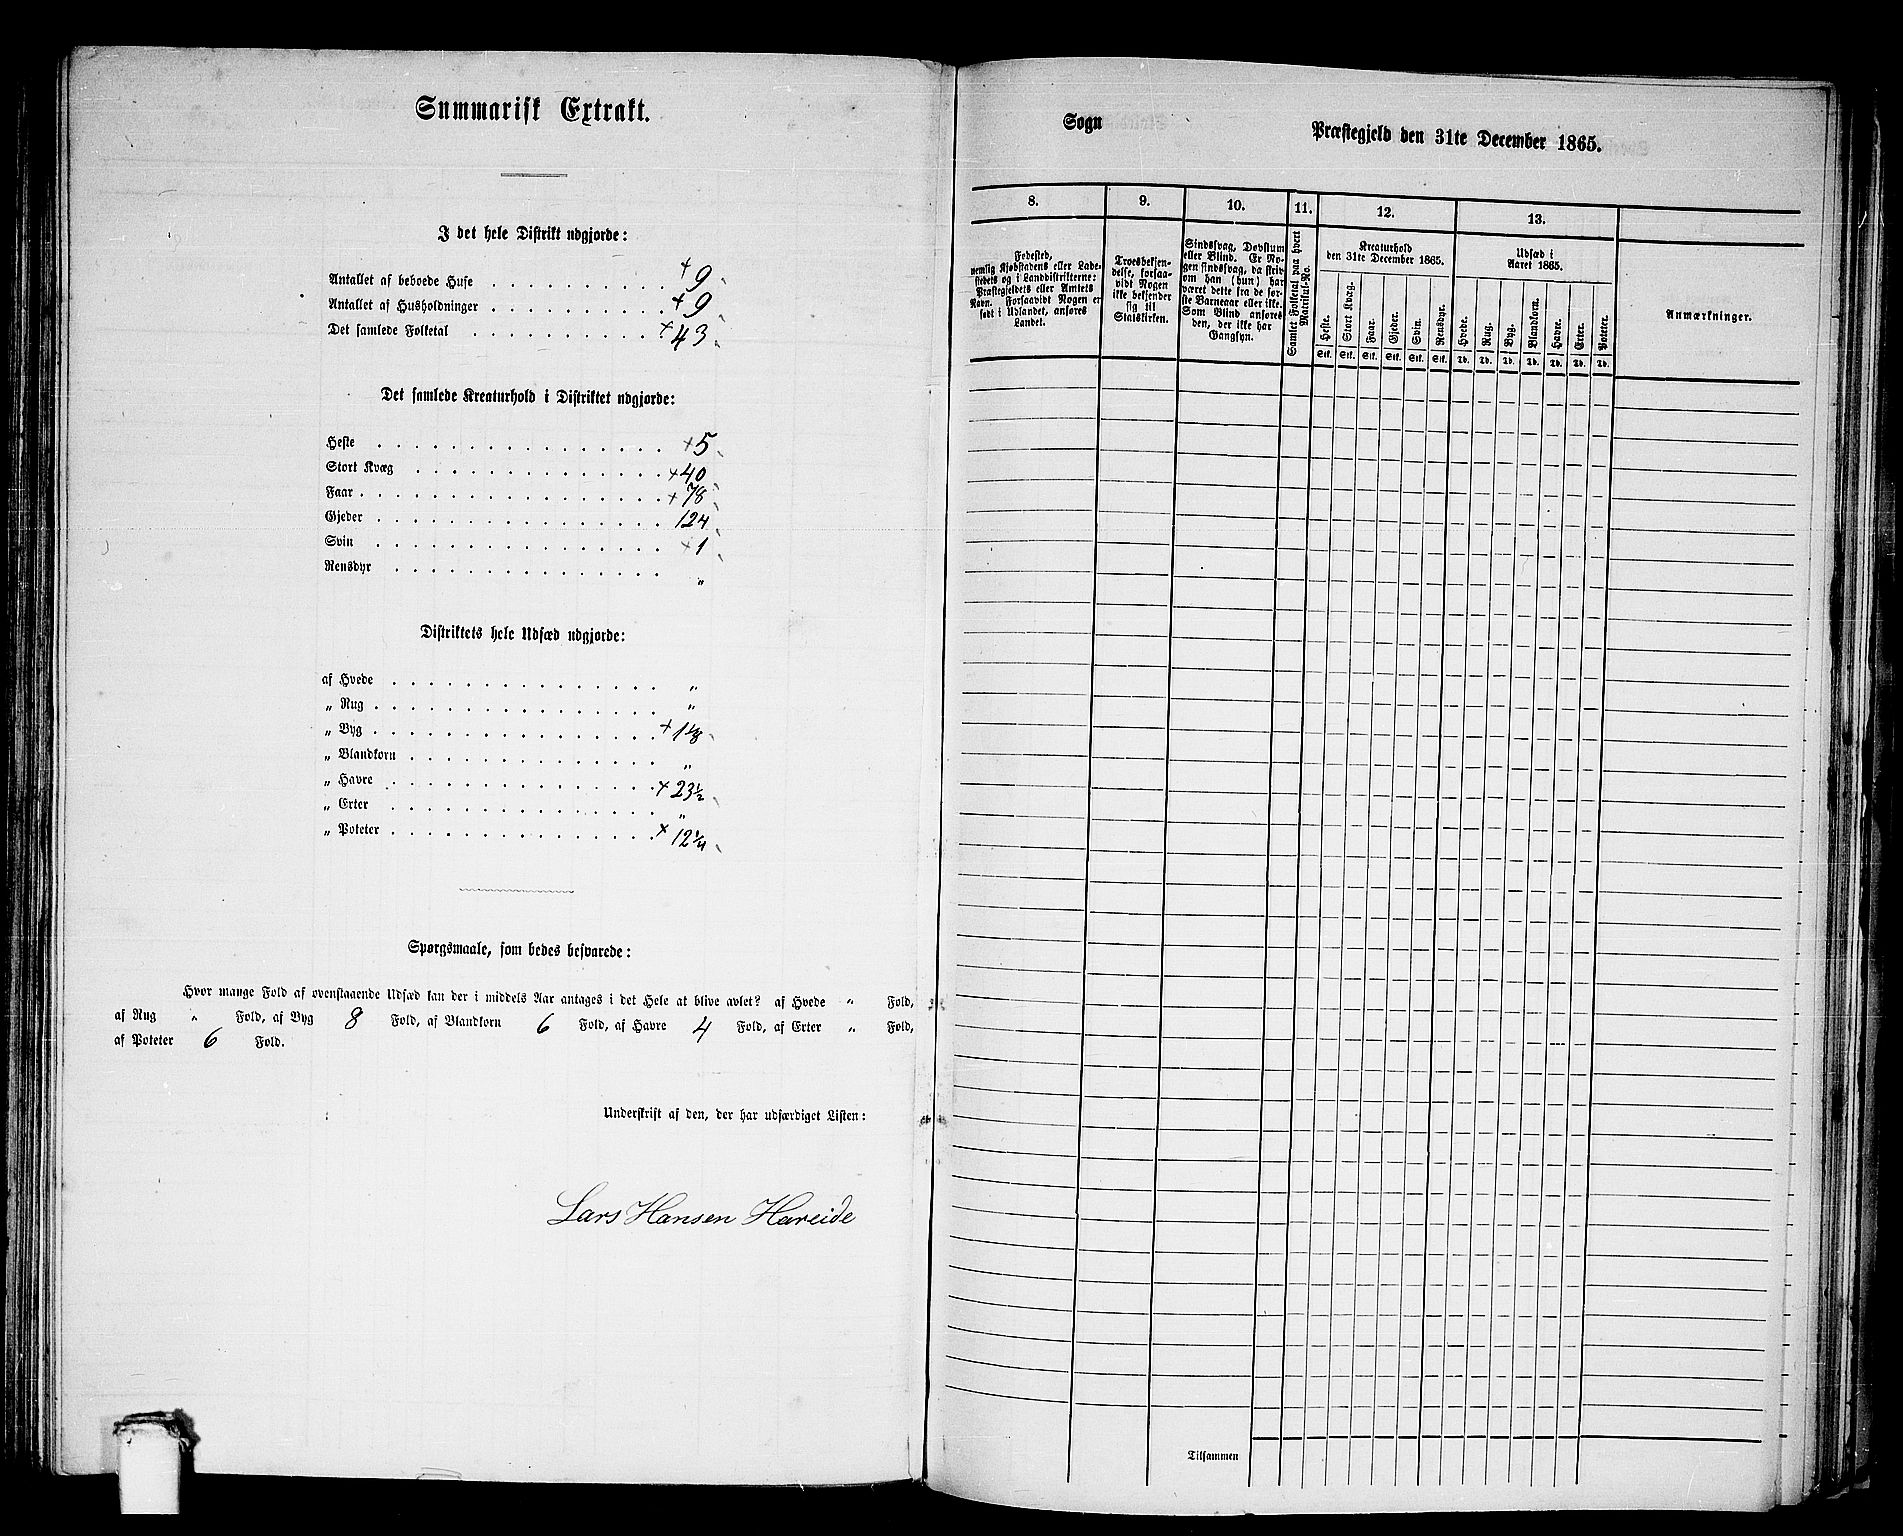 Summarisk Extrakt.
I det hele Distrikt udgjorde:
Antallet af beboede Huse . . . . . . . . . . + 9
Antallet af Husholdninger . . . . . . . . . . + 9
Det samlede Folketal . . . . . . . . . . + 43
Det samlede Kreaturhold i Distriktet udgjorde:
Heste . . . . . . . . . . + 5
Stort Kvæg . . . . . . . . . . + 40
Faar . . . . . . . . . . + 78
Gjeder . . . . . . . . . . 124
Svin . . . . . . . . . . + 1
Rensdyr . . . . . . . . . . „
Distriktets hele Udsæd udgjorde:
af Hvede . . . . . . . . . . „
„ Rug . . . . . . . . . . „
„ Byg . . . . . . . . . . + 1 1/8
„ Blandkorn . . . . . . . . . . „
„ Havre . . . . . . . . . . + 23 1/2
„ Erter . . . . . . . . . . „
„ Poteter . . . . . . . . . . + 12 1/4
Spørgsmaale, som bedes besvarede:
Hvor mange Fold af ovenstaaende Udsæd kan der i middels Aar antages i det Hele at blive avlet? af Hvede „ Fold,
af Rug „ Fold, af Byg 8 Fold, af Blandkorn 6 Fold, af Havre 4 Fold, af Erter „ Fold,
af Poteter 6 Fold.
Underskrift af den, der har udfærdiget Listen:
Lars Hansen Hareide
Sogn Præstegjeld den 31te December 1865.
8. 9. 10. 11. 12. 13.
Fødested,
nemlig Kjøbstadens eller Ladestedets og i Landdistrikterne:
Præstegjeldets eller Amtets
Navn. Forsaavidt Nogen er
født i Udlandet, anføres
Landet.
Troesbekjendelse, forsaavidt Nogen
ikke bekjender
sig til
Statskirken.
Sindssvag, Døvstum
eller Blind. Er Nogen sindssvag, da skrives om han (hun) har
været dette fra de første Barneaar eller ikke.
Som Blind anføres
den, der ikke har
Gangsyn.
Samlet Folketal paa hvert
Matrikul-No.
Kreaturhold
den 31te December 1865.
Heste. Stort Kvæg. Faar. Gjeder. Svin. Rensdyr.
Stk. Stk. Stk. Stk. Stk. Stk.
Udsæd i
Aaret 1865.
Hvede. Rug. Byg. Blandkorn. Havre. Erter. Poteter.
Td. Td. Td. Td. Td. Td. Td.
Anmærkninger.
Tilsammen